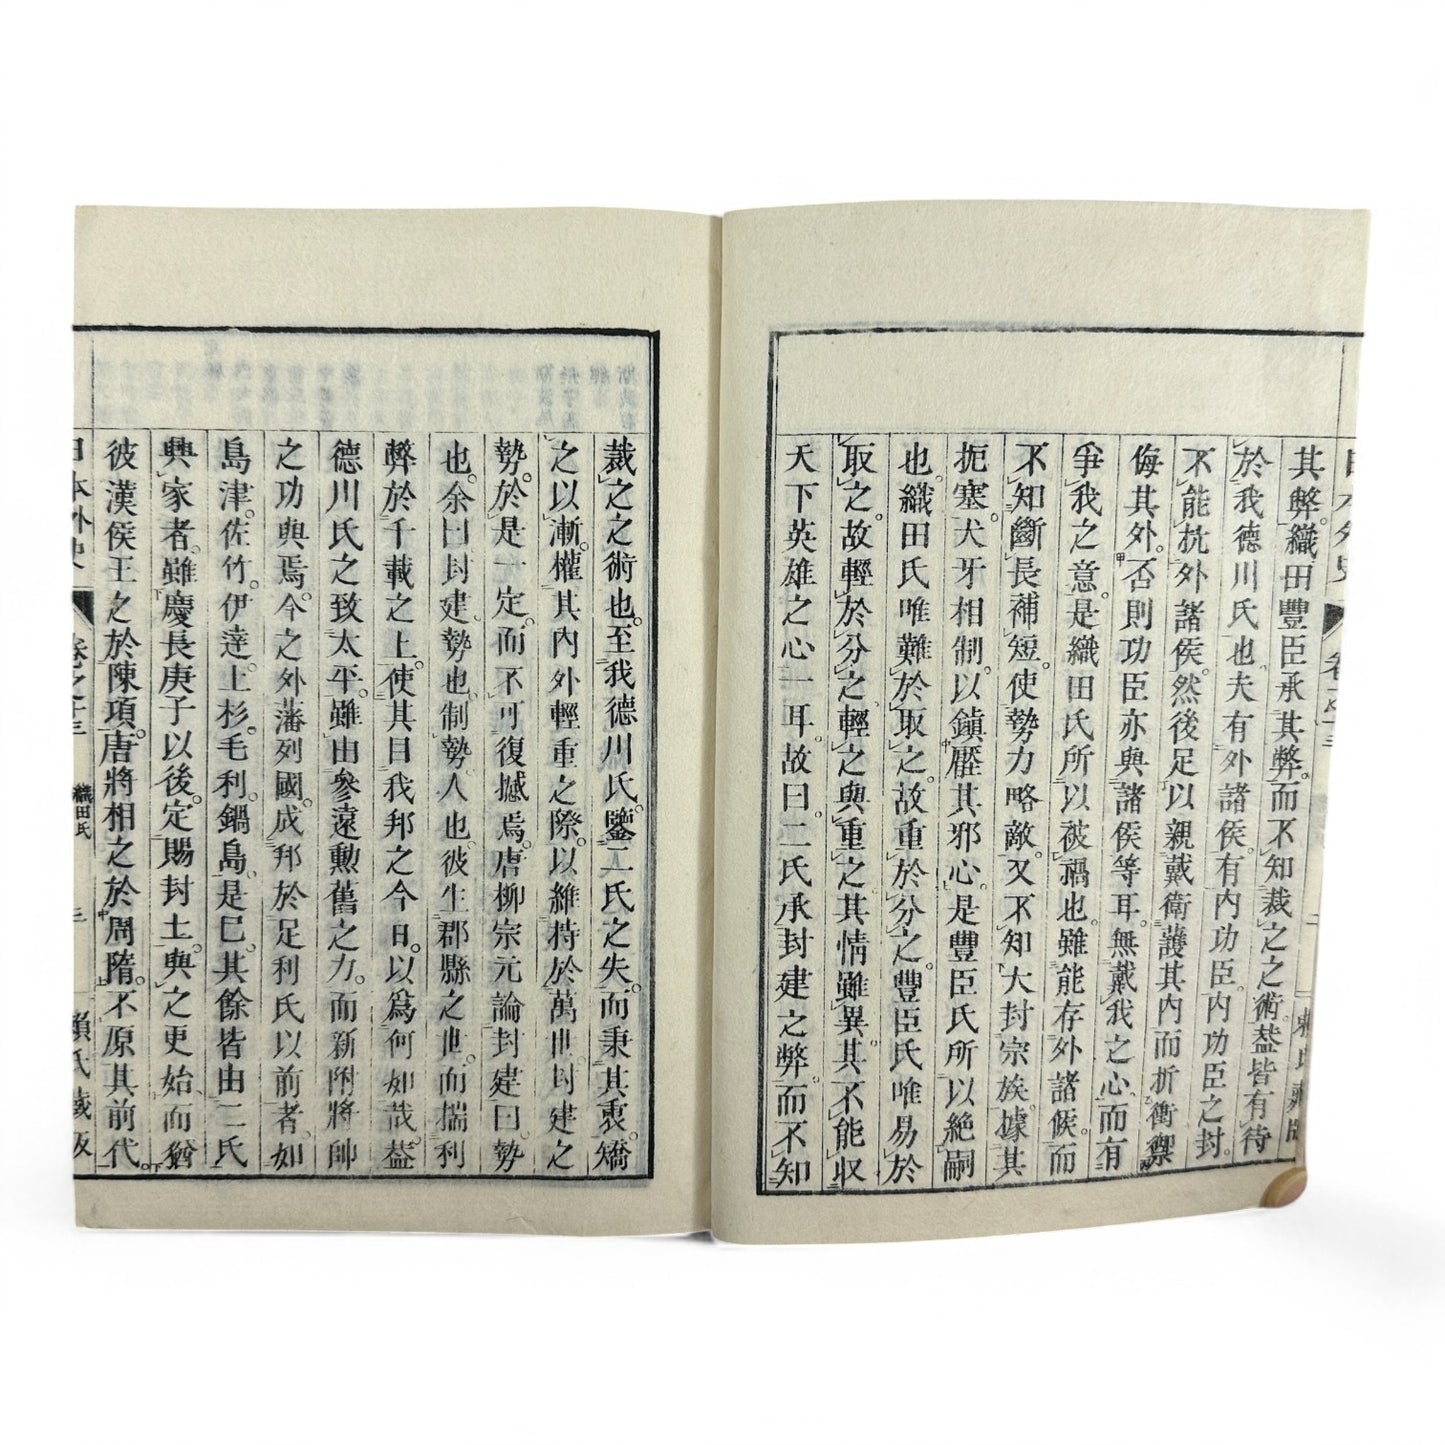 其弊。織田豐臣承其弊。而不知裁之之術。葢皆有待
於我德川氏也。夫有外諸侯。有內功臣。內功臣之封。
不能抗外諸侯。然後足以親戴衛護其內而折衝禦
侮其外。否則功臣亦與諸侯等耳。無戴我之心。而有
爭我之意。是織田氏所以被禍也。雖能存外諸侯。而
不知斷長補短。使勢力略敵。又不知大封宗族。據其
扼塞。犬牙相制。以鎮壓其邪心。是豐臣氏所以絶嗣
也。織田氏唯難於取之。故重於分之。豐臣氏唯易於
取之。故輕於分之。輕之與重之。其情雖異。其不能収
天下英雄之心一耳。故曰。二氏承封建之弊。而不知
裁之之術也。至我德川氏。鑒二氏之失。而秉其衷。矯
之以漸。權其內外輕重之際。以維持於萬世。封建之
勢。於是一定。而不可復撼焉。唐柳宗元論封建曰。勢
也。余曰。封建。勢也。制勢。人也。彼生郡縣之世。而揣利
弊於千載之上。使其目我邦之今日。以爲何如哉。葢
德川氏之致太平。雖由參遠勳舊之力。而新附將帥
之功與焉。今之外藩列國。成邦於足利氏以前者。如
島津。佐竹。伊達。上杉。毛利。鍋島。是已。其餘皆由二氏
興家者。雖慶長庚子以後。定賜封土。與之更始。而猶
彼漢侯王之於陳項。唐將相之於周隋。不原其前代。
日本外史 卷之十三 織田氏 三 賴氏藏版